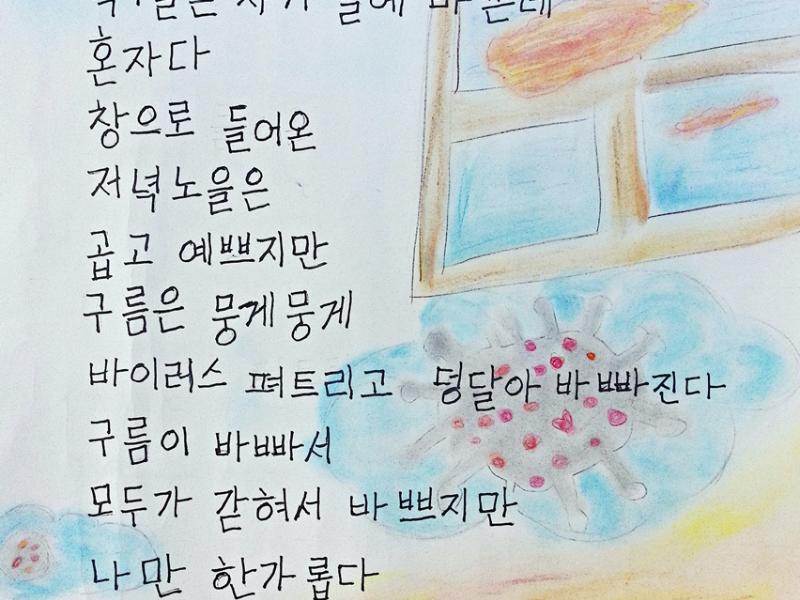 혼자다
창으로 들어온
저녁노을은
곱고 예쁘지만
구름은 뭉게뭉게
바이러스 펴트리고 덩달아 바빠진다
구름이 바빠서
모두가 갇혀서 바쁘지만
나만 한가롭다